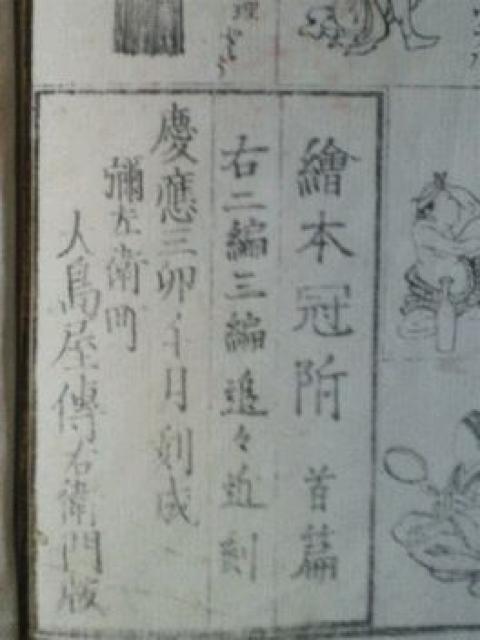 繪本冠附 首篇
右二編三編追々近刻
慶應三卯 月刻成
彌左衛門
鳥屋傳右衛門版
理